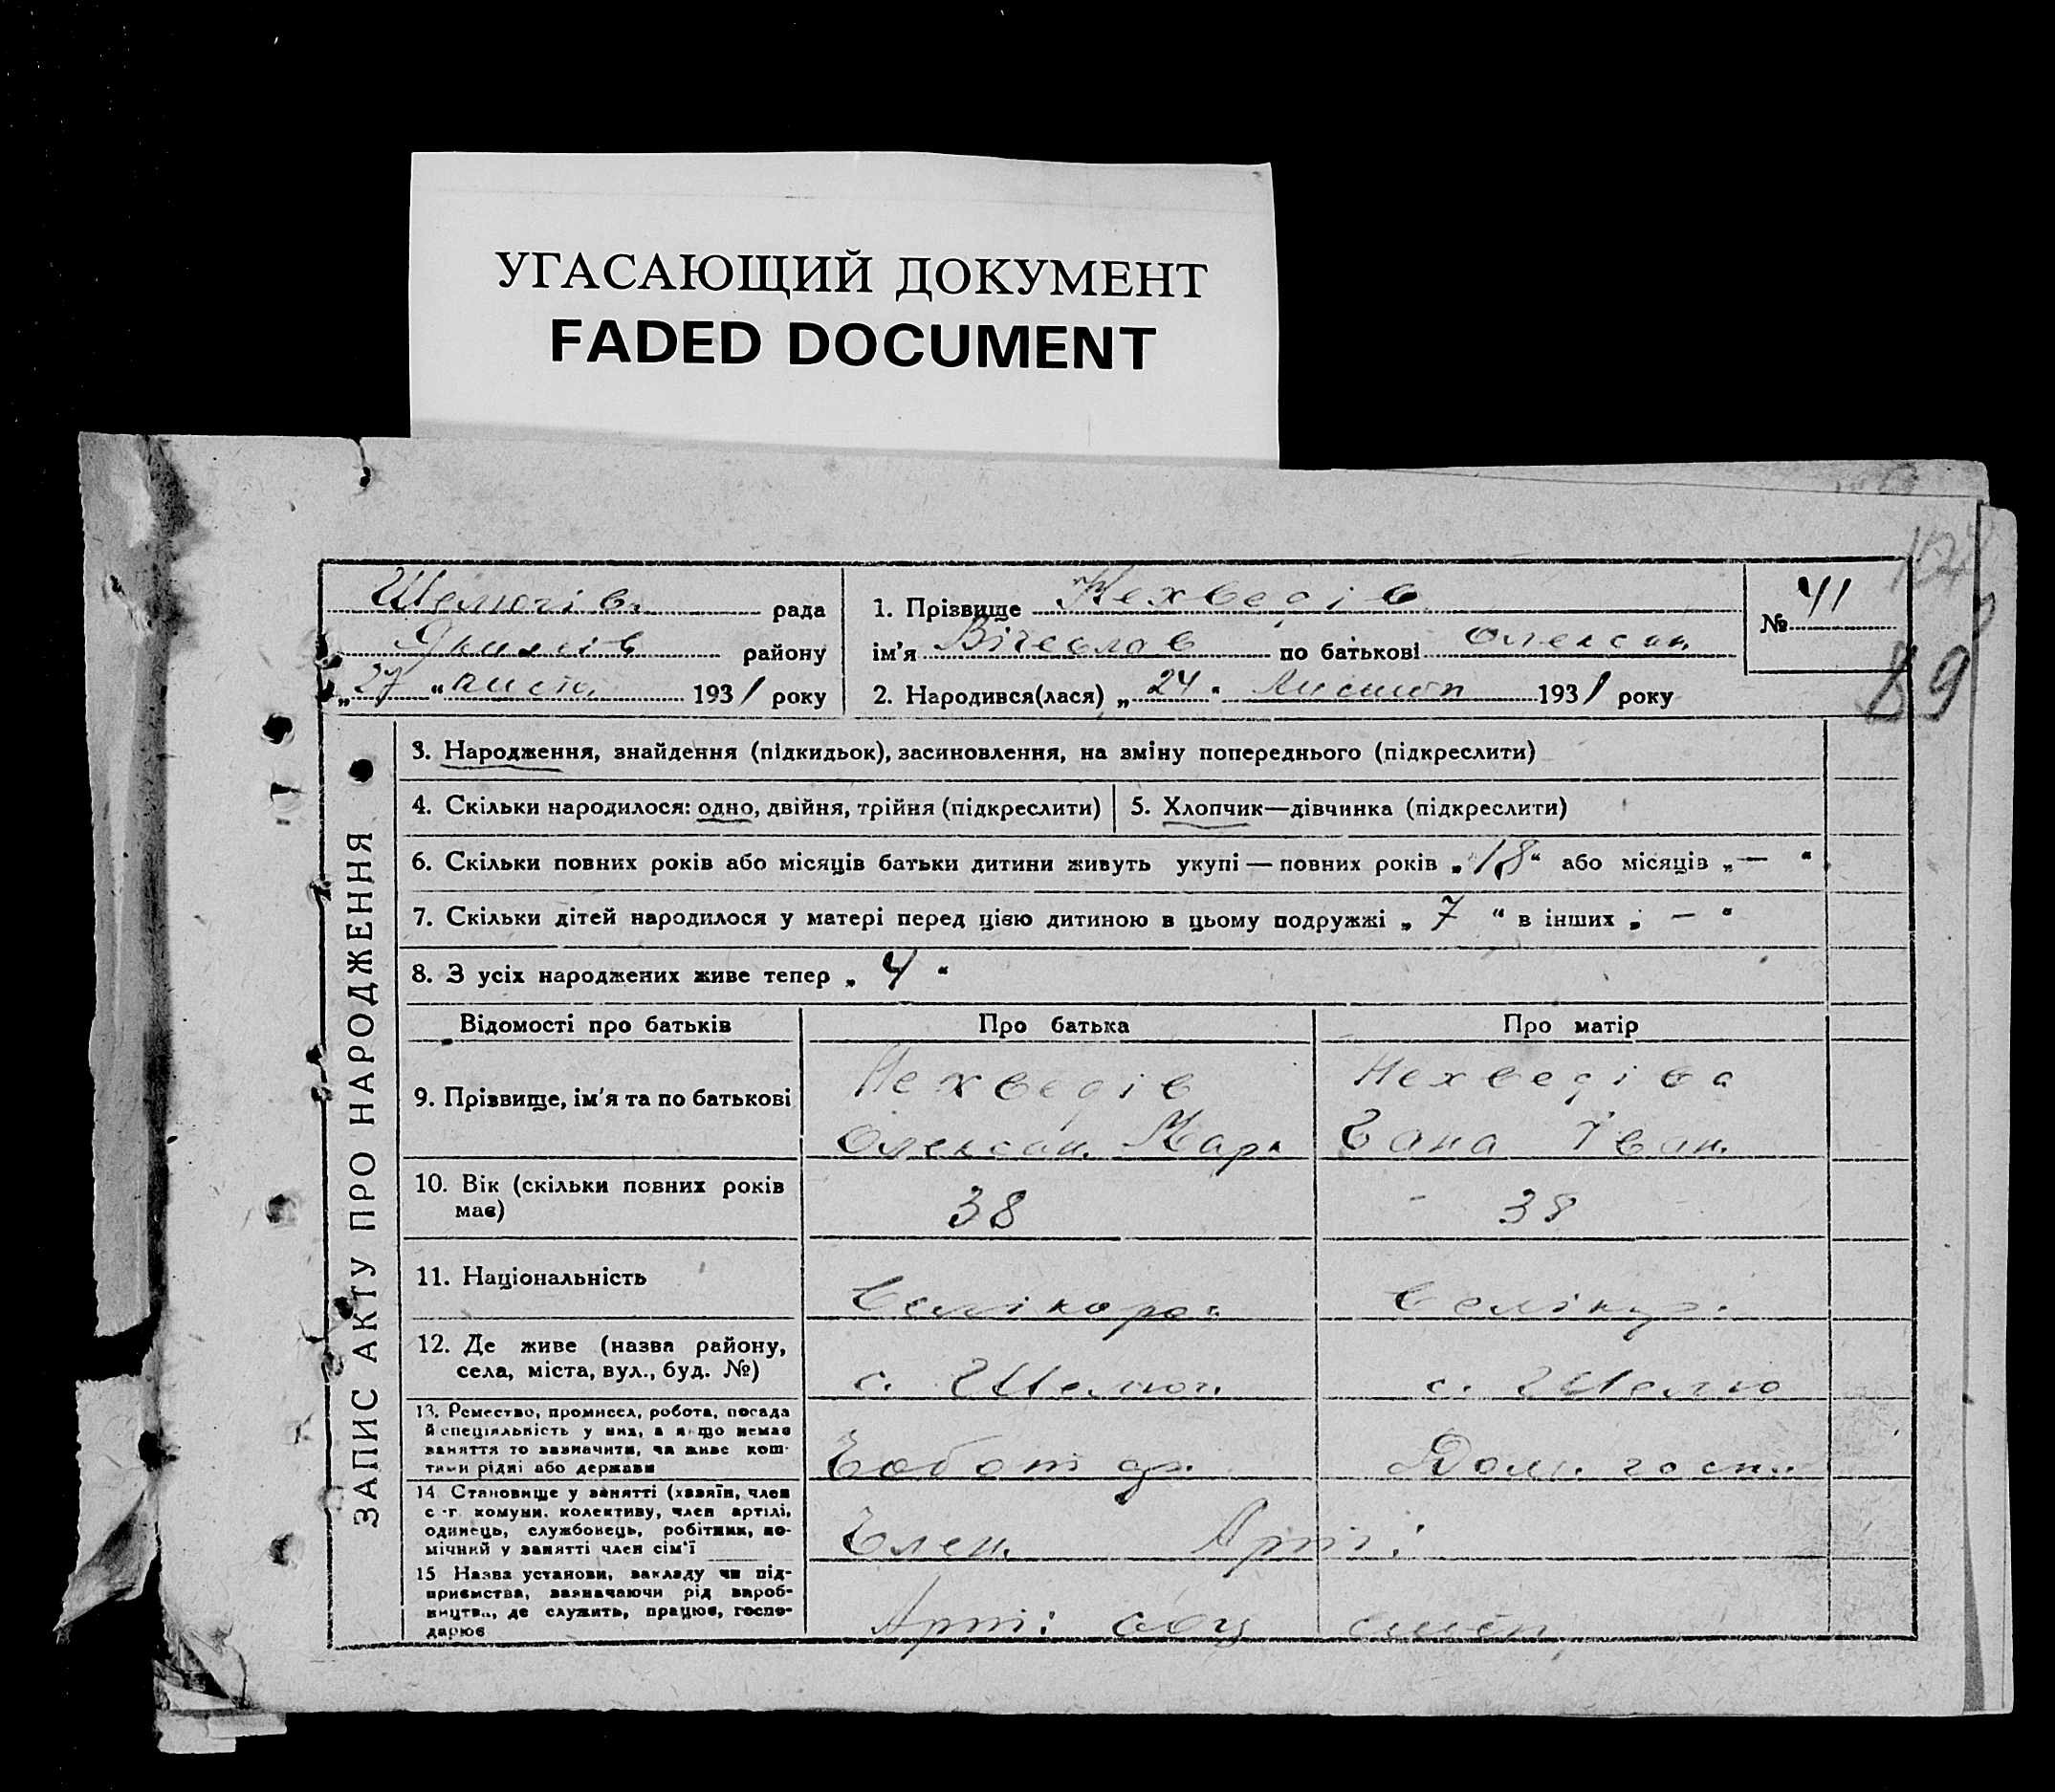 УГАСАЮЩИЙ ДОКУМЕНТ
FADED DOCUMENT
Шелюгів. рада
району
„27“ листо. 1931 року
1. Прізвище Нехведів
ім'я Вічеслав по батькові Олексан.
2. Народився(лася) „24“ Листоп 1931 року
№ 41
89
ЗАПИС АКТУ ПРО НАРОДЖЕННЯ
3. Народження, знайдення (підкидьок), засиновлення, на зміну попереднього (підкреслити)
4. Скільки народилося: одно, двійня, трійня (підкреслити)
5. Хлопчик—дівчинка (підкреслити)
6. Скільки повних років або місяців батьки дитини живуть укупі — повних років „18“ або місяців „—“
7. Скільки дітей народилося у матері перед цією дитиною в цьому подружжі „7“ в інших „—“
8. З усіх народжених живе тепер „4“
Відомості про батьків Про батька Про матір
9. Прізвище, ім'я та по батькові
Нехведів
Олексан. Мар.
Нехведіва
Іван.
10. Вік (скільки повних років
має)
38
38
11. Національність
Велікорос.
Велікур.
12. Де живе (назва району,
села, міста, вул., буд. №)
с. Шелюг.
с. Шелю
13. Ремество, промисел, робота, посада
й спеціяльність у них, а якщо немає
заняття то зазначити, чи живе кош-
тами рідні або держави
Дом. госп.
14 Становище у занятті (хазяїн, член
с.-г. комуни, колективу, член артілі,
одинець, службовець, робітник, по-
мічний у занятті член сім'ї
Член. Арт:
15 Назва установи, закладу чи під-
приємства, зазначаючи рід вироб-
ництва, де служить, працює, госпо-
дарює
Арт: соц